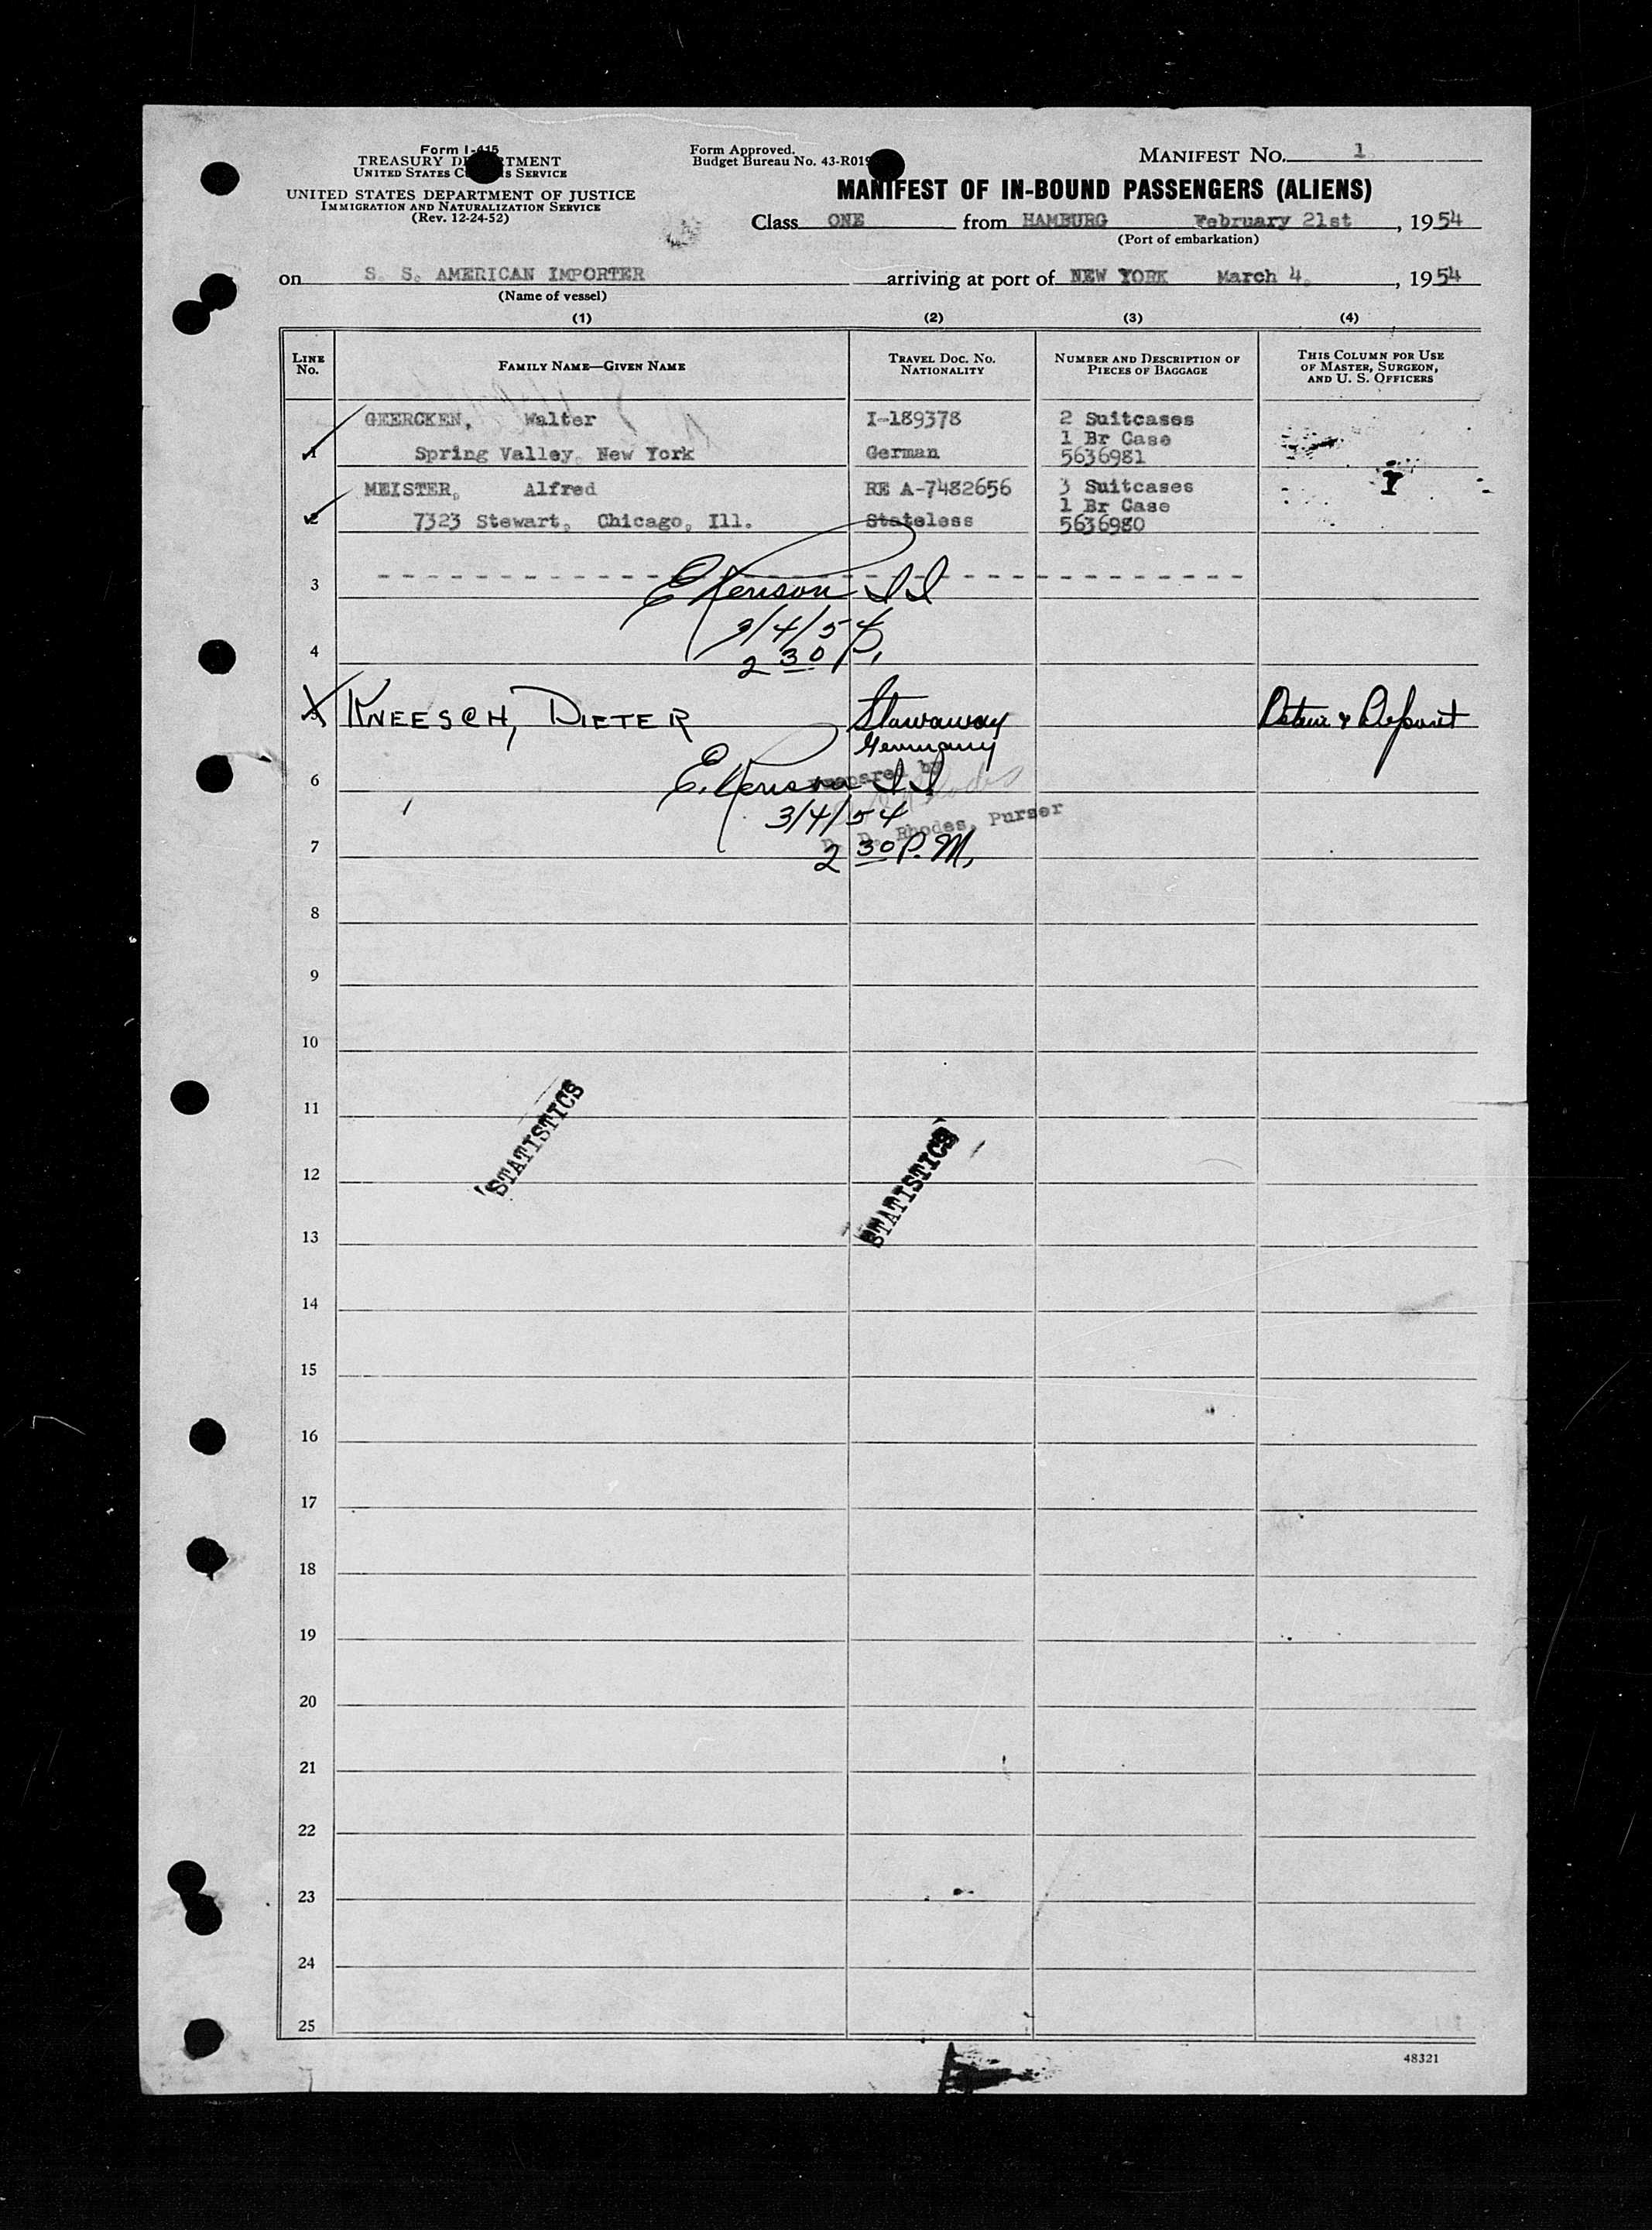 Form I-415
TREASURY DEPARTMENT
UNITED STATES CUSTOMS SERVICE
UNITED STATES DEPARTMENT OF JUSTICE
IMMIGRATION AND NATURALIZATION SERVICE
(Rev. 12-24-52)
Form Approved.
Budget Bureau No. 43-R019
MANIFEST NO. 1
MANIFEST OF IN-BOUND PASSENGERS (ALIENS)
Class ONE from HAMBURG February 21st, 1954
(Port of embarkation)
on S. S. AMERICAN IMPORTER arriving at port of NEW YORK March 4, 1954
(Name of vessel)
(1) (2) (3) (4)
LINE NO. FAMILY NAME—GIVEN NAME TRAVEL DOC. NO. NATIONALITY NUMBER AND DESCRIPTION OF PIECES OF BAGGAGE THIS COLUMN FOR USE OF MASTER, SURGEON, AND U. S. OFFICERS
GEERCKEN, Walter I-189378 2 Suitcases
1 Br Case
1 Spring Valley, New York German 5636981
MEISTER, Alfred RE A-7482656 3 Suitcases
1 Br Case
2 7323 Stewart, Chicago, Ill. Stateless 5636980
3 E Kenison II
3/4/54
4 2 30 P.
5 KNEESCH, DIETER Stowaway Detain & Deport
Germany
Prepared by
6 E. Kenison II
3/4/54
D. Rhodes, Purser
7 2 30 P.M.
8
9
10
11
STATISTICS
STATISTICS
12
13
14
15
16
17
18
19
20
21
22
23
24
25
48321